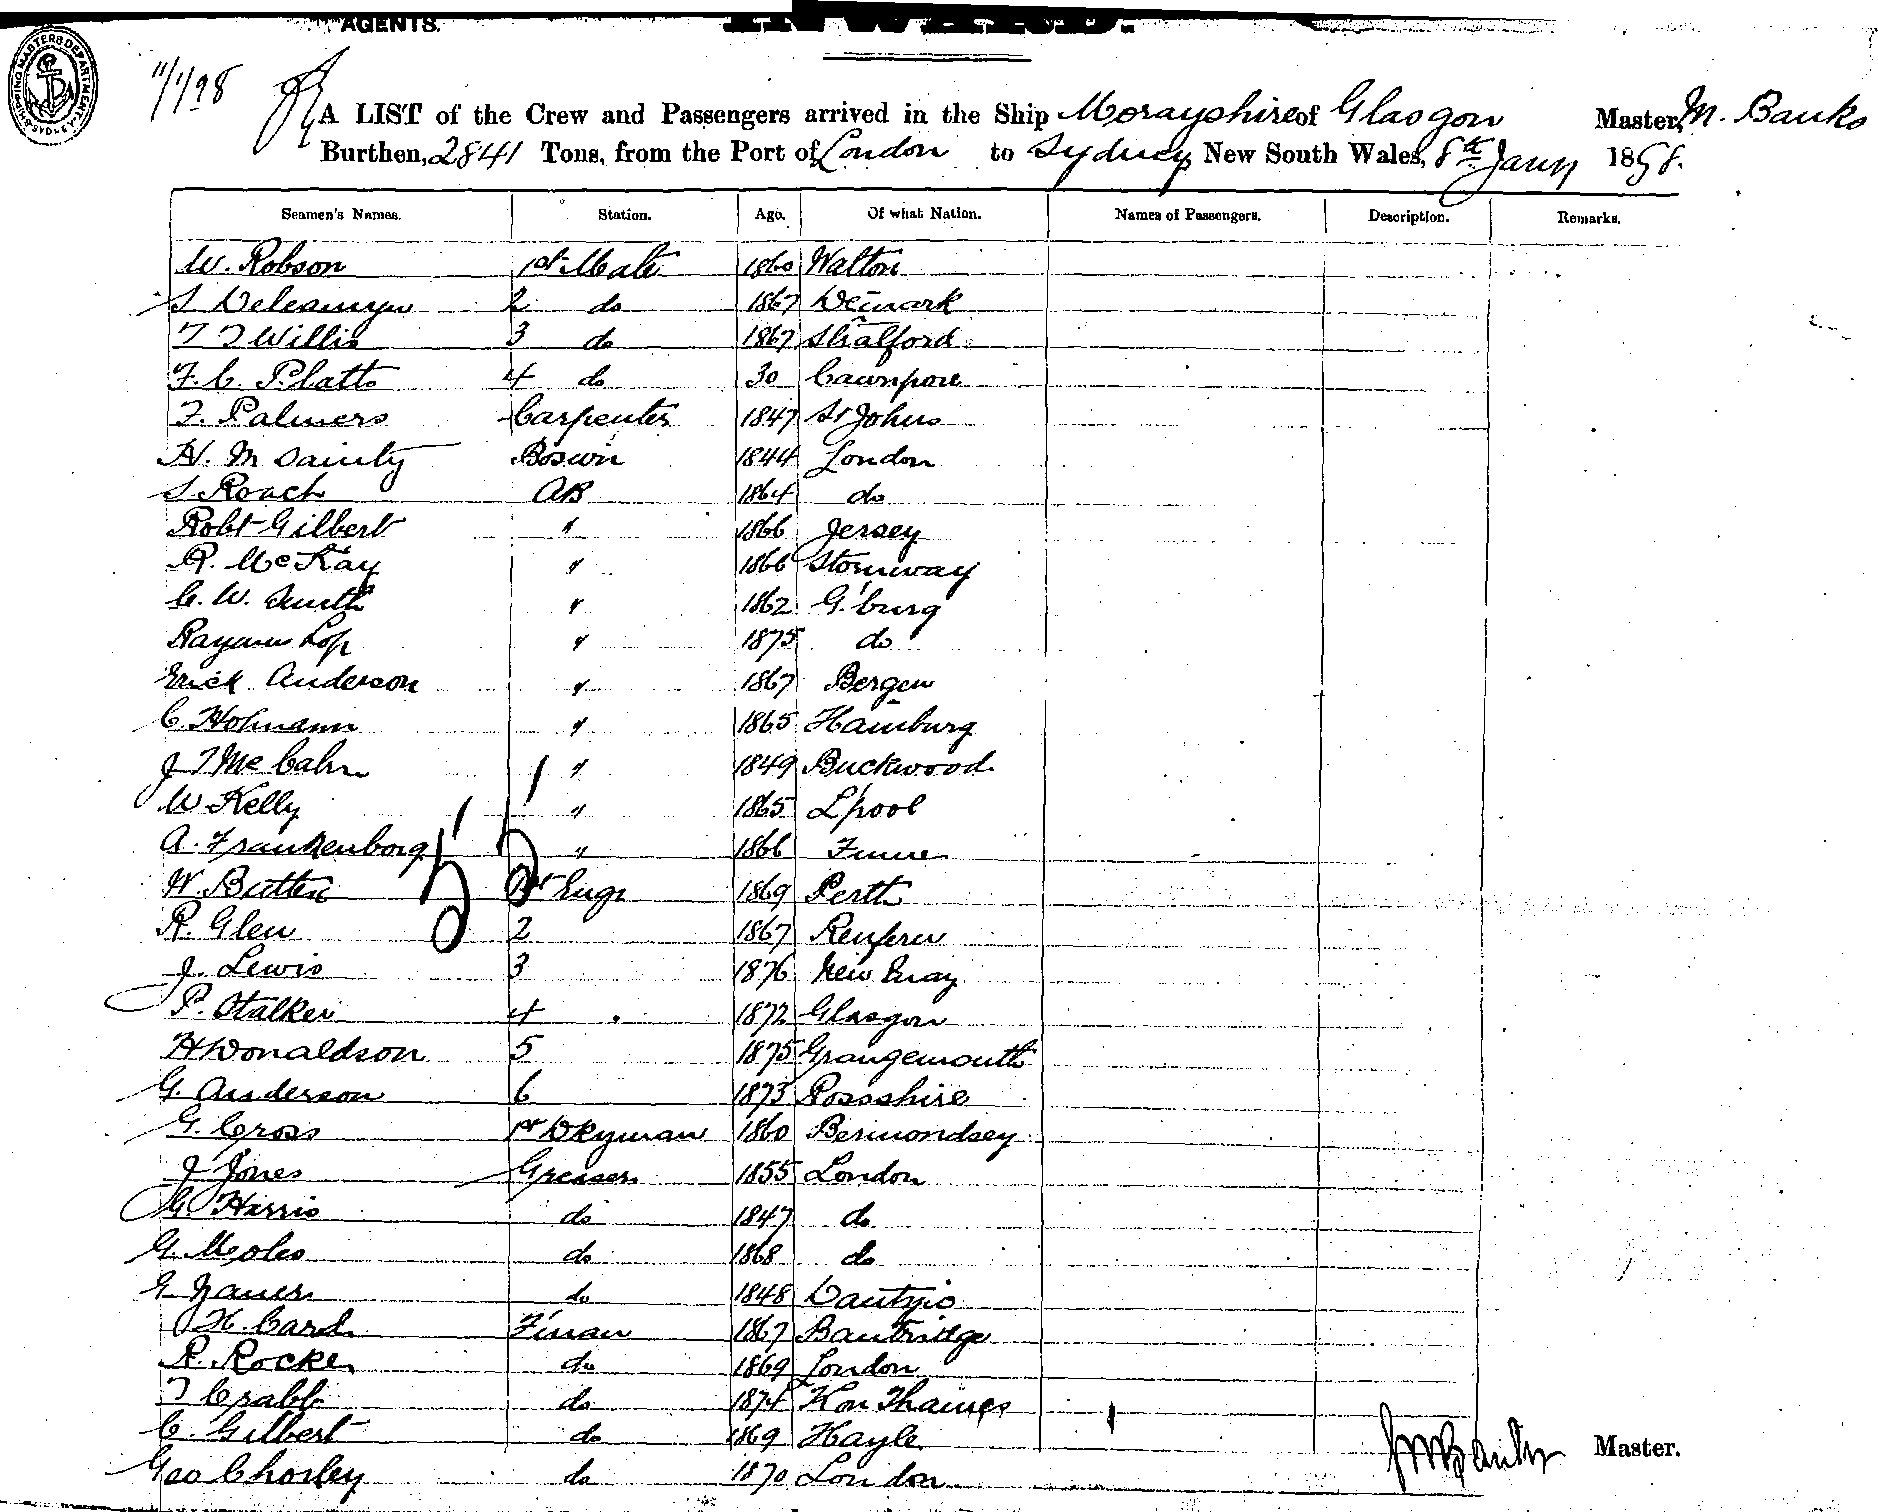 AGENTS. INWARD.
SHIPPING MASTERS DEPARTMENT SYDNEY
11/1/98
A LIST of the Crew and Passengers arrived in the Ship Morayshire of Glasgow Master, M. Banks
Burthen, 2841 Tons, from the Port of London to Sydney New South Wales, 8th Jany 1898.
Seamen's Names. Station. Age. Of what Nation. Names of Passengers. Description. Remarks.
W. Robson 1st Mate 1860 Walton
S 2 do 1867 Denmark
T T Willis 3 do 1867 Stratford
F. C. Platts 4 do 30 Cawnpore
F. Palmers Carpenter 1847 St Johns
H. M Dainty Boswn 1844 London
S Roach AB 1864 do
Robt Gilbert " 1866 Jersey
R. McKay " 1866 Stornway
C. W. Smith " 1862 G'burg
" 1875 do
Erick Anderson " 1867 Bergen
C. Hofmann " 1865 Hamburg
J T " 1849 Buckwood
W Kelly " 1865 L'pool
A. Frankenborg " 1866
W. Batten 1st Engr 1869 Perth
R. Glen 2 1867 Renfrew
J. Lewis 3 1876 New Quay
P. Stalker 4 1872 Glasgow
H Donaldson 5 1875 Grangemouth
G. Anderson 6 1873 Rossshire
G. Cross 1st Dkyman 1860 Bermondsey
J Jones Greaser 1855 London
G. Harris do 1847 do
G. Moles do 1868 do
G do 1848 Dantzic
H. Card F'man 1867
R. Rocke do 1869 London
T Crabb do 1874 K on Thames
C. Gilbert do 1869 Hayle
Geo Chorley do 1870 London
J M Banks Master.